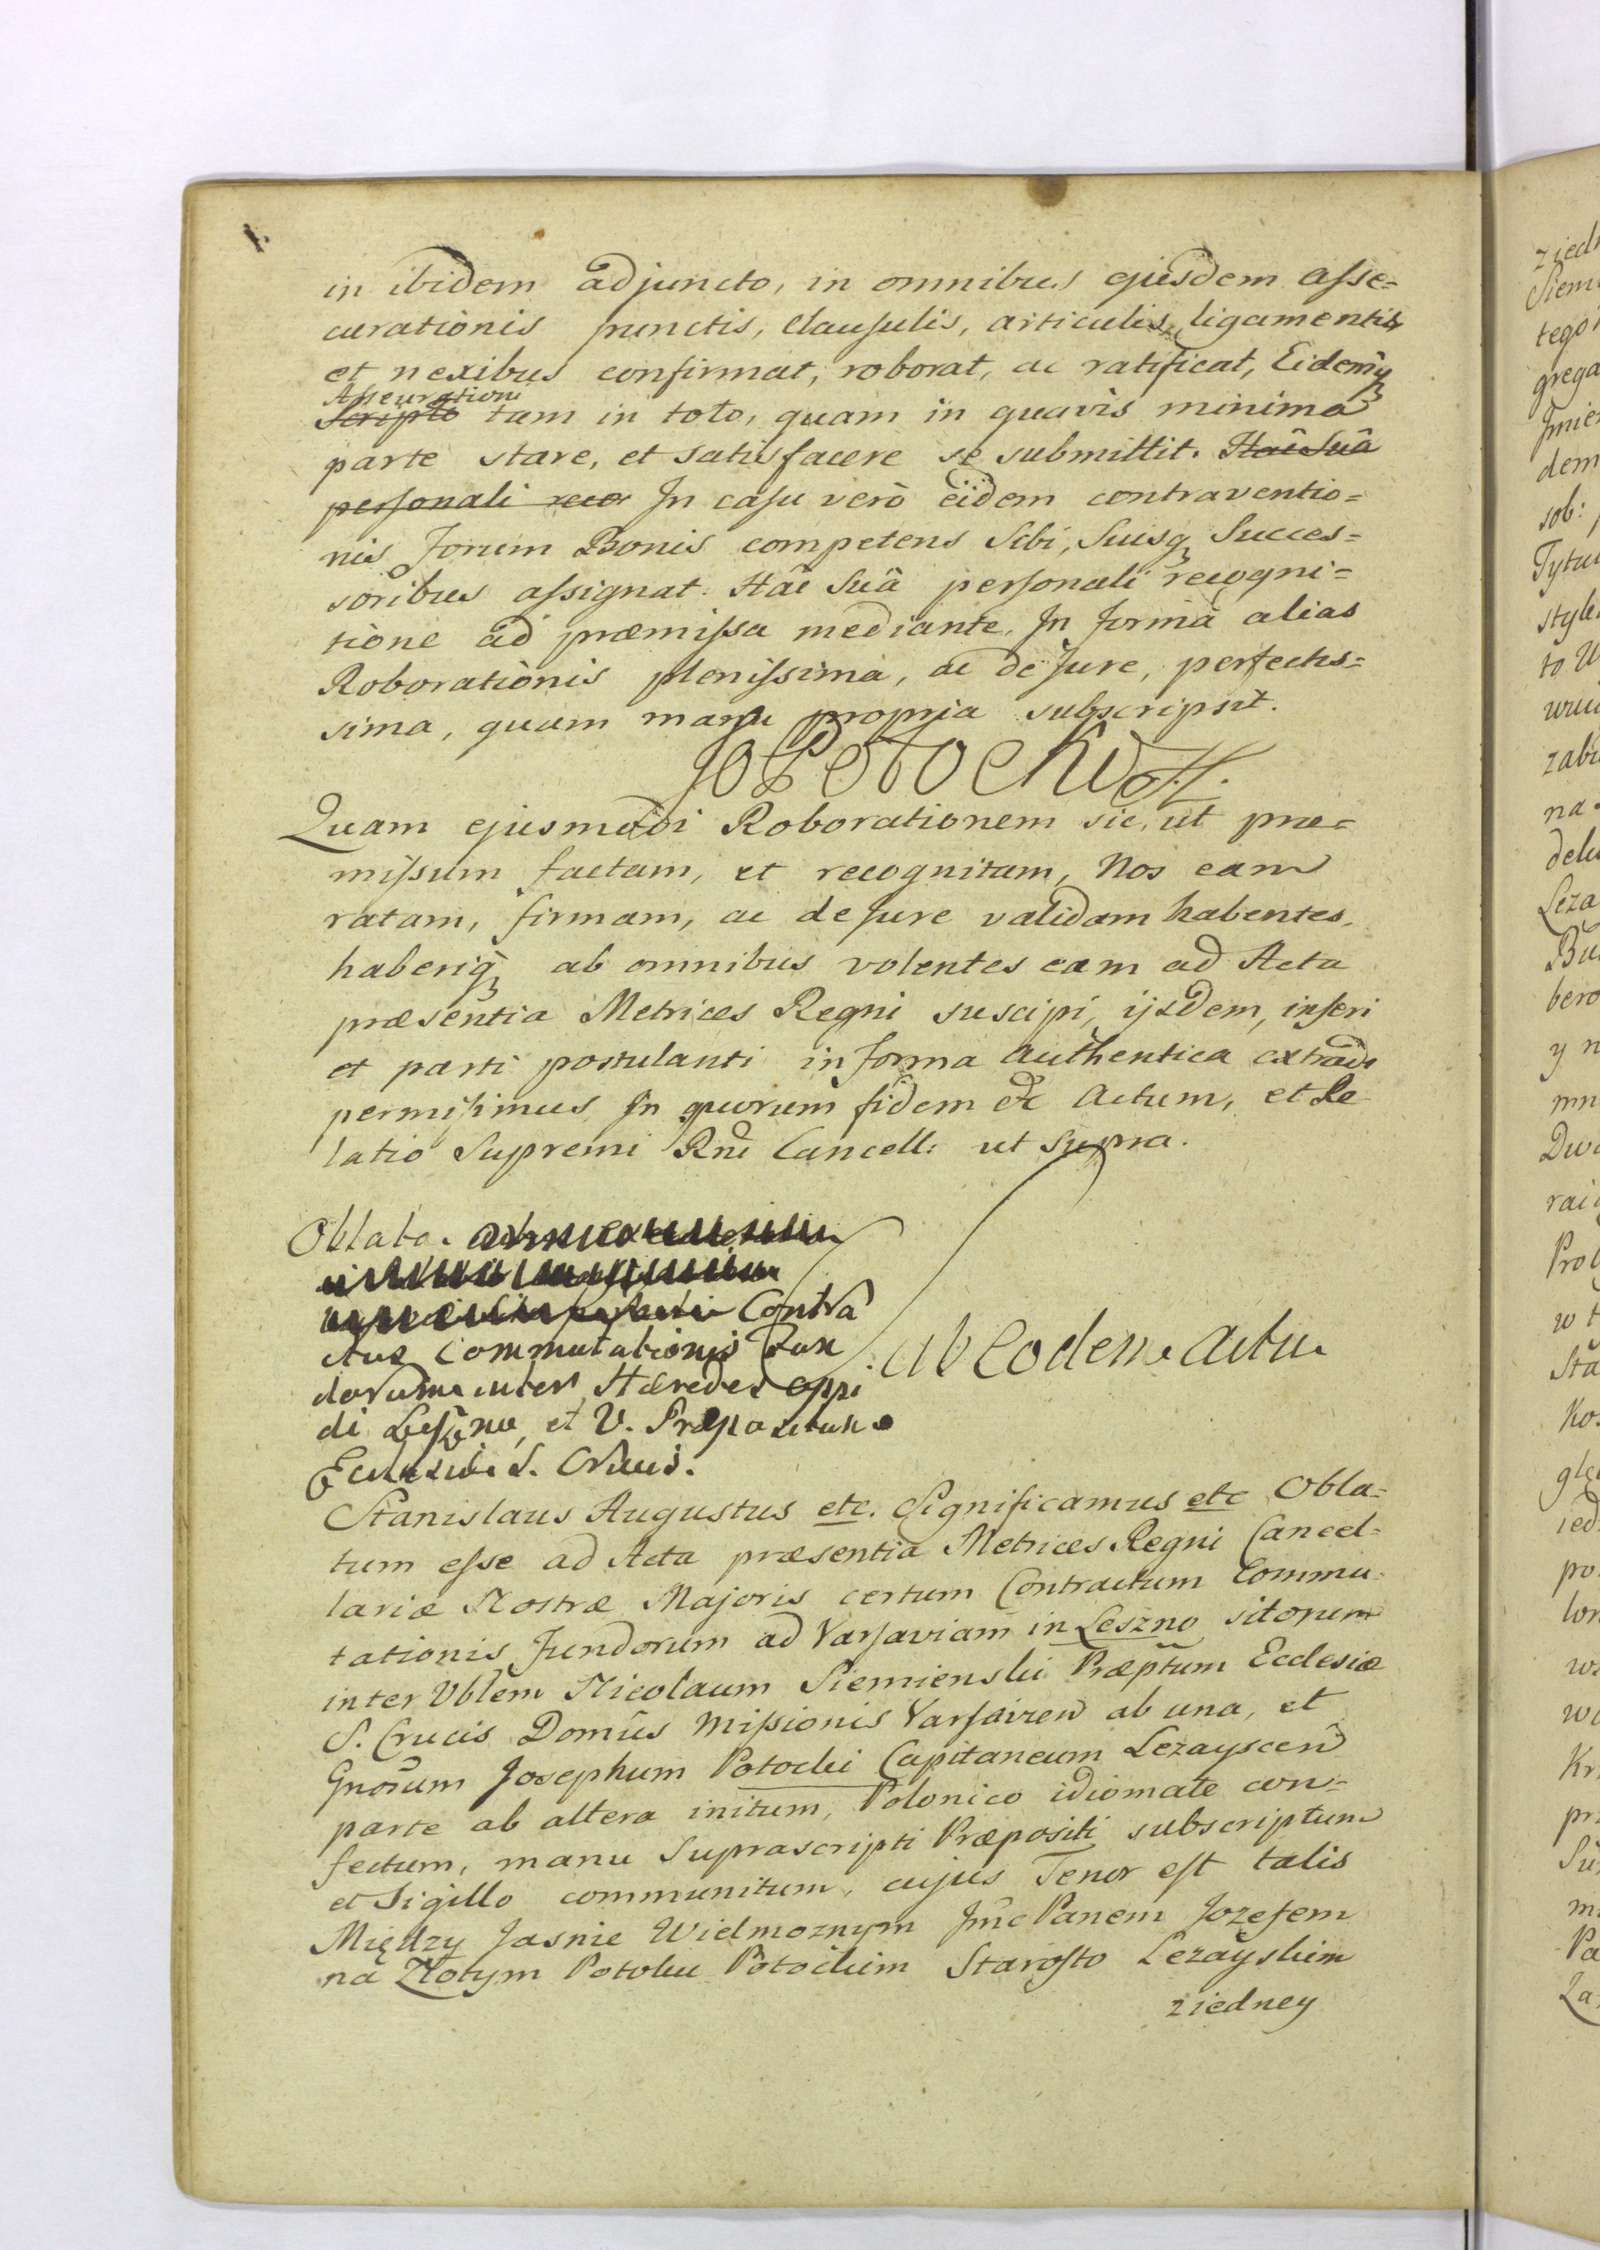 in ibidem adjuncto, in omnibus ejusdem asse=
curationis punctis, clausulis, articulis, ligamentis
et nexibus confirmat, roborat, ac ratificat, Eidemq
Assecurationi
Scripto tam in toto, quam in quavis minima
parte stare, et satisfacere se submittit. Hâc Suâ
personali reco In casu verò eidem contraventio=
nis Forum Bonis competens Sibi, Suisq Succes=
soribus assignat. Hâc Suâ personali recogni=
tione ad præmissa mediante. In forma alias
Roborationis plenissima, ac de Jure, perfectis=
sima, quam manu propria subscripsit.
Jo Potocki
Quam ejusmodi Roborationem sic, ut præ=
missum factam, et recognitam, Nos eam
ratam, firmam, ac de Jure validam habentes,
haberiq ab omnibus volentes eam ad Acta
præsentia Metrices Regni suscipi, ijsdem, inseri
et parti postulanti in forma authentica extradi
permisimus In quorum fidem etc Actum, et Re
latio Supremi Rni Cancell: ut supra.
Oblata.
Contra
ctus Commutationis Fun
dorum inter Hæredes oppi
di Leszno, et V. Præpositum
Ecclesiæ S. Crucis.
ab Eodem Actu
Stanislaus Augustus etc. Significamus etc Obla=
tum esse ad Acta præsentia Metrices Regni Cancel=
lariæ Nostræ Majoris certum Contractum Commu=
tationis Fundorum ad Varsaviam in Leszno sitorum
inter Vblem Nicolaum Siemienski Præptum Ecclesiæ
S. Crucis Domûs Missionis Varsavien ab una, et
Gnosum Josephum Potocki Capitaneum Lezayscen
parte ab altera initum, Polonico idiomate con=
fectum, manu Suprascripti Præpositi subscriptum
et Sigillo communitum, cujus Tenor est talis
Między Jasnie Wielmoznym Jmc Panem Jozefem
na Złotym Potoku Potockim Starosto Lezayskim
ziedney